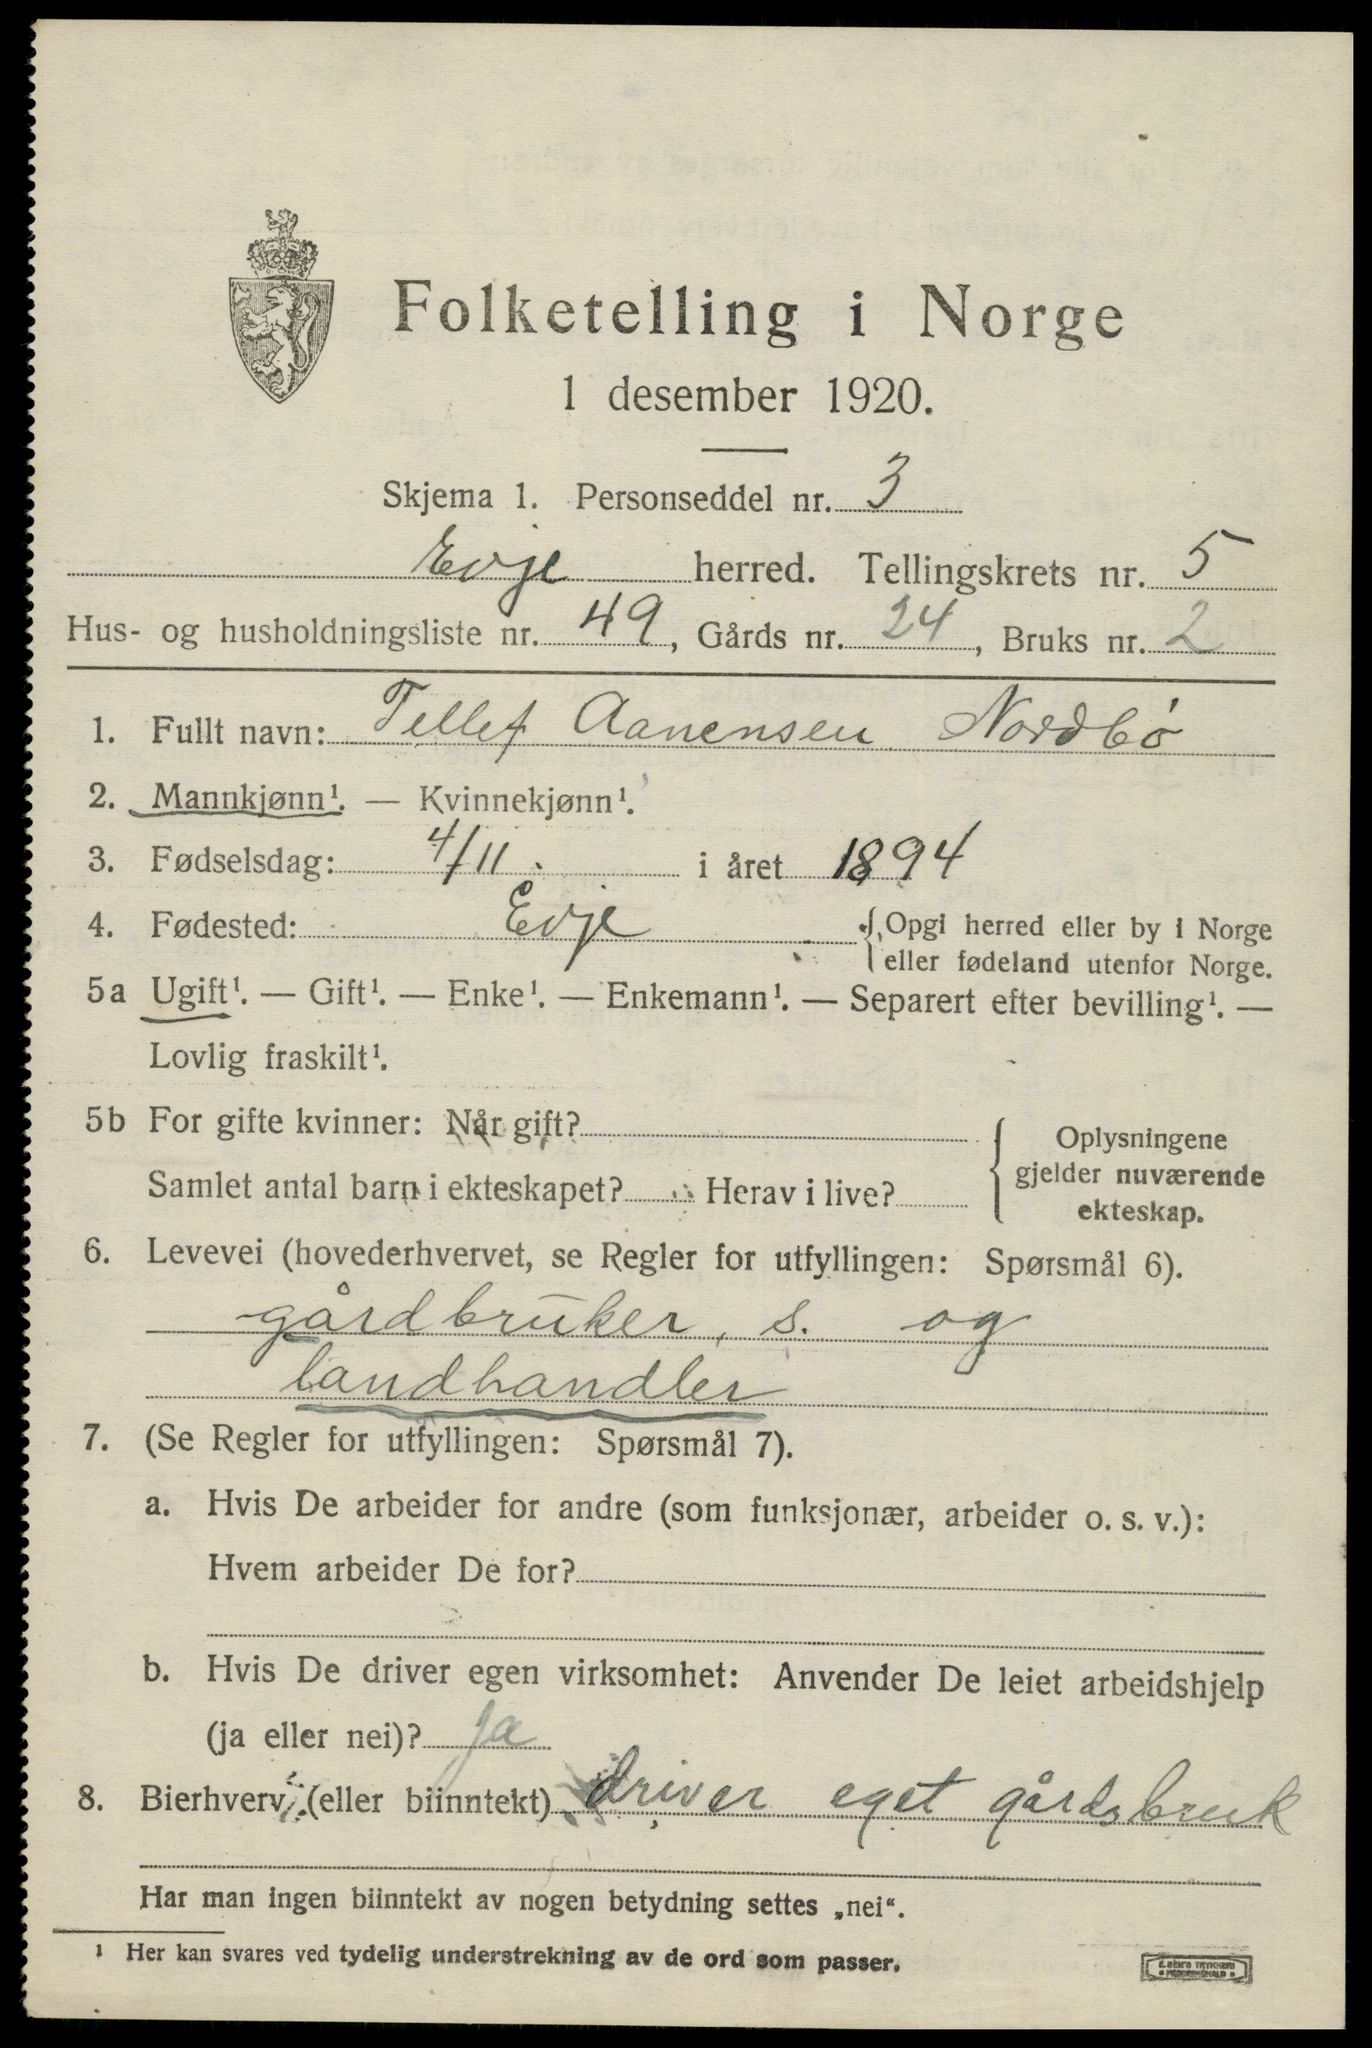 Folketelling i Norge
1 desember 1920.
Skjema 1. Personseddel nr. 3
Evje herred. Tellingskrets nr. 5
Hus- og husholdningsliste nr. 49, Gårds nr. 24, Bruks nr. 2
1. Fullt navn: Tellef Aanensen Nordbö
2. Mannkjønn¹. — Kvinnekjønn¹.
3. Fødselsdag: 4/11. i året 1894
4. Fødested: Evje {Opgi herred eller by i Norge
eller fødeland utenfor Norge.
5a Ugift¹. — Gift¹. — Enke¹. — Enkemann¹. — Separert efter bevilling¹. —
Lovlig fraskilt¹.
5b For gifte kvinner: Når gift?
Samlet antal barn i ekteskapet? Herav i live?
{ Oplysningene
gjelder nuværende
ekteskap.
6. Levevei (hovederhvervet, se Regler for utfyllingen: Spørsmål 6).
gårdbruker, s. og
landhandler
7. (Se Regler for utfyllingen: Spørsmål 7).
a. Hvis De arbeider for andre (som funksjonær, arbeider o. s. v.):
Hvem arbeider De for?
b. Hvis De driver egen virksomhet: Anvender De leiet arbeidshjelp
(ja eller nei)? Ja
8. Bierhverv (eller biinntekt) driver eget gårdsbruk
Har man ingen biinntekt av nogen betydning settes „nei“.
¹ Her kan svares ved tydelig understrekning av de ord som passer.